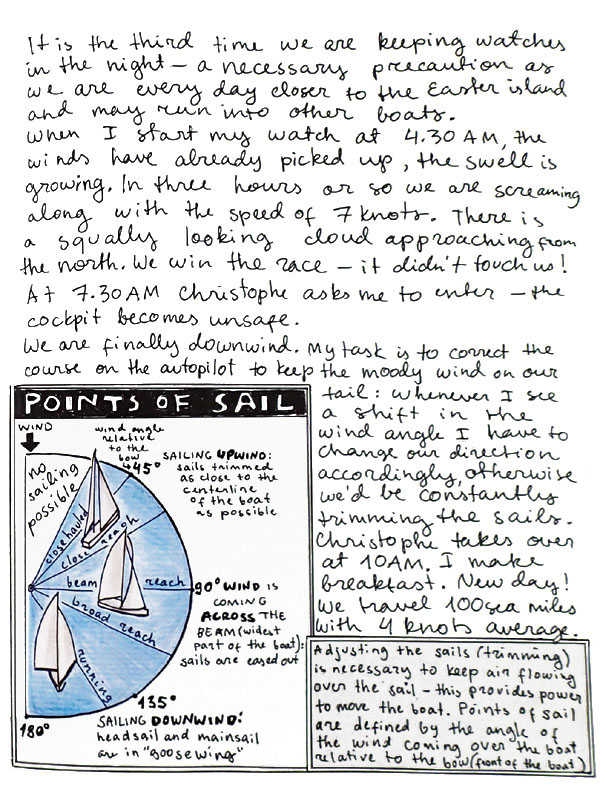 It is the third time we are keeping watches
in the night – a necessary precaution as
we are every day closer to the Easter island
and may run into other boats.
When I start my watch at 4.30 AM, the
winds have already picked up, the swell is
growing. In three hours or so we are screaming
along with the speed of 7 knots. There is
a squally looking cloud approaching from
the north. We win the race – it didn't touch us!
At 7.30 AM Christophe asks me to enter – the
cockpit becomes unsafe.
We are finally downwind. My task is to correct the
course on the autopilot to keep the moody wind on our
tail: whenever I see
a shift in the
wind angle I have to
change our direction
accordingly, otherwise
we'd be constantly
trimming the sails.
Christophe takes over
at 10AM. I make
breakfast. New day!
We travel 100 sea miles
with 4 knots average.
POINTS OF SAIL
WIND
no
sailing
possible
wind angle
relative
to the
bow
45°
SAILING UPWIND:
sails trimmed
as close to the
centerline
of the boat
as possible
closehauled
close reach
beam reach
90° WIND IS
COMING
ACROSS THE
BEAM (widest
part of the boat):
sails are eased out
broad reach
running
135°
180°
SAILING DOWNWIND:
headsail and mainsail
are in "goosewing"
Adjusting the sails (trimming)
is necessary to keep air flowing
over the sail – this provides power
to move the boat. Points of sail
are defined by the angle of
the wind coming over the boat
relative to the bow (front of the boat)